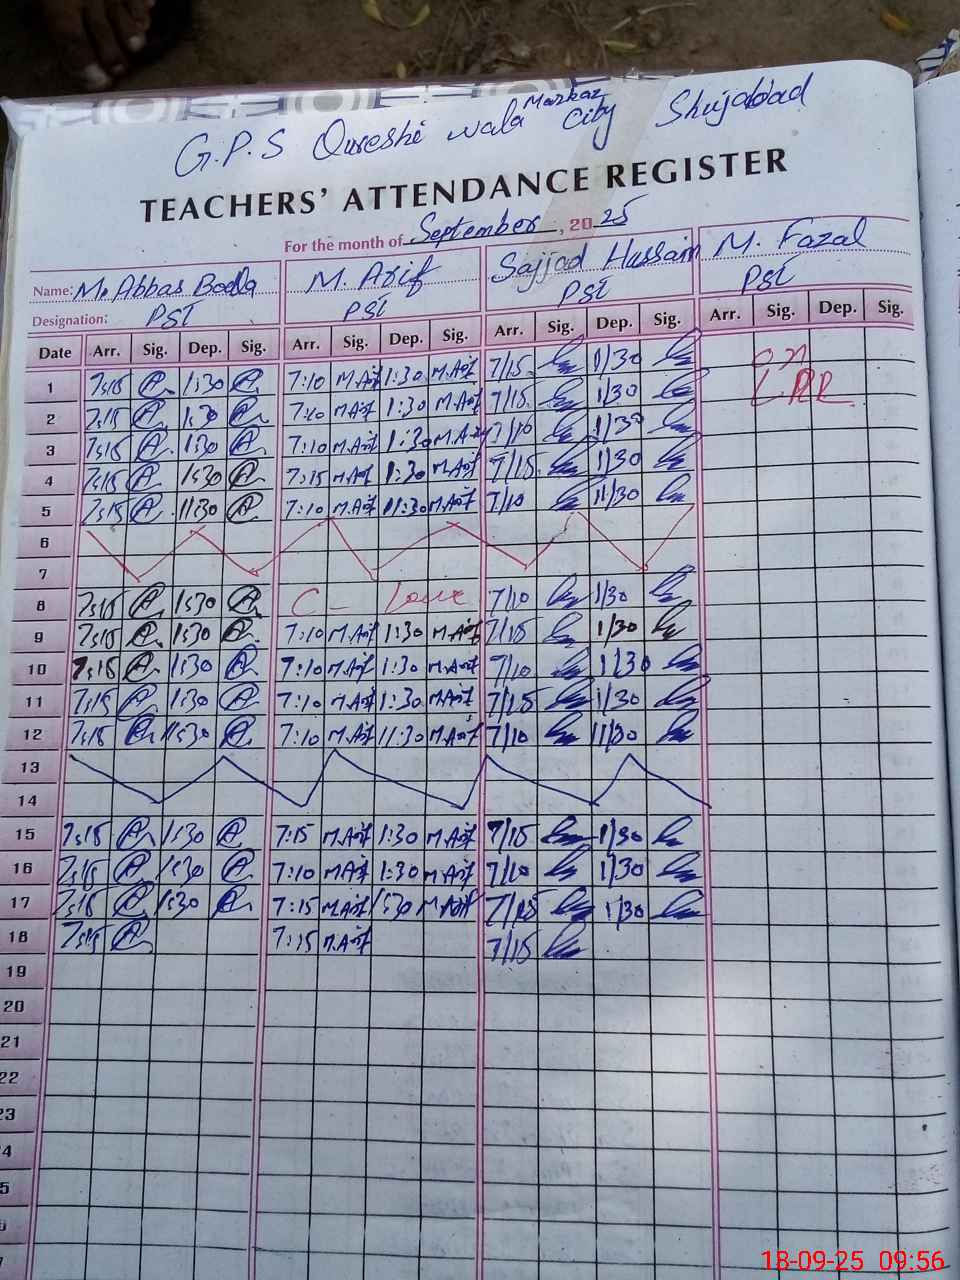 G.P.S Qureshi wala Markaz City Shujabad
TEACHERS' ATTENDANCE REGISTER
For the month of September, 2025
Name: M. Abbas M. Arif Sajjad Hussain M. Fazal
Designation: PST PST PST PST
Date Arr. Sig. Dep. Sig. Arr. Sig. Dep. Sig. Arr. Sig. Dep. Sig. Arr. Sig. Dep. Sig.
1 7:15 1:30 7:10 M.Arif 1:30 M.Arif 7/15 1/30 on
2 7:15 1:30 7:10 M.Arif 1:30 M.Arif 7/15 1/30
3 7:15 1:30 7:10 M.Arif 1:30 M.Arif 7/10 1/30
4 7:15 1:30 7:15 M.Arif 1:30 M.Arif 7/15 1/30
5 7:15 11:30 7:10 M.Arif 11:30 M.Arif 7/10 11/30
6
7
8 7:15 1:30 C- Leave 7/10 1/30
9 7:15 1:30 7:10 M.Arif 1:30 M.Arif 7/15 1/30
10 7:15 1:30 7:10 M.Arif 1:30 M.Arif 7/10 1/30
11 7:15 1:30 7:10 M.Arif 1:30 M.Arif 7/15 1/30
12 7:15 11:30 7:10 M.Arif 11:30 M.Arif 7/10 11/30
13
14
15 7:15 1:30 7:15 M.Arif 1:30 M.Arif 7/15 1/30
16 7:15 1:30 7:10 M.Arif 1:30 M.Arif 7/10 1/30
17 7:15 1:30 7:15 M.Arif 1:30 M.Arif 7/15 1/30
18 7:15 7:15 M.Arif 7/15
19
20
21
22
23
4
5
18-09-25 09:56